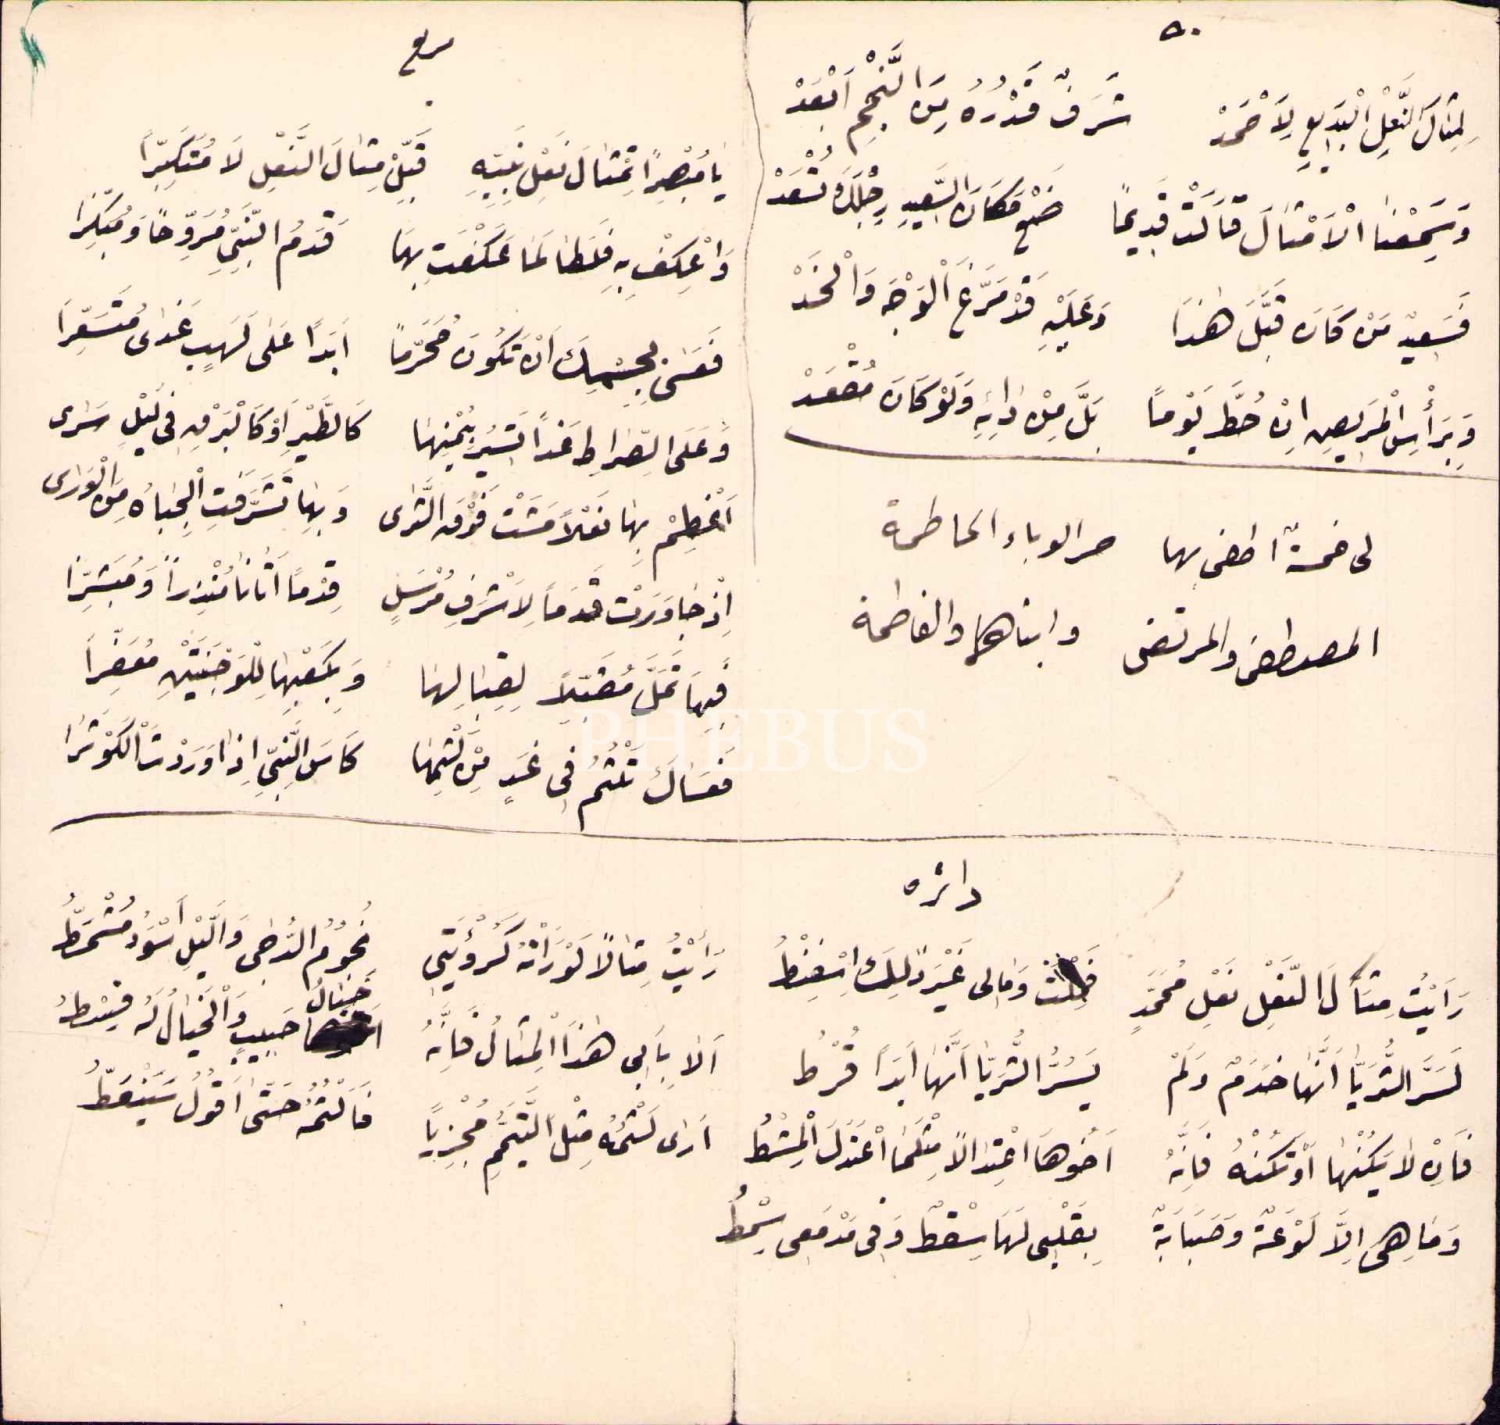 ٥٠
لِمِثَالِ النَّعْلِ الْبَدِيعِ لِأَحْمَدْ شَرَفٌ قَدْرُهُ مِنَ النَّجْمِ اَبْعَدْ
وَسَمِعْنَا الْاَمْثَالَ قَالَتْ قَدِيمًا ضَعْ مَكَانَ السَّعِيدِ رِجْلَكَ تُسْعَدْ
فَسَعِيدٌ مَنْ كَانَ قَبَّلَ هٰذَا وَعَلَيْهِ قَدْ مَرَّغَ الْوَجْهَ وَالْخَدْ
وَبِرَأْسِ الْمَرِيضِ اِنْ حُطَّ يَوْمًا بَلَّ مِنْ دَائِهِ وَلَوْ كَانَ مُقْعَدْ
لى خمسةٌ اطفى بها حر الوباء الحاطمة
المصطفى والمرتضى وابناهما والفاطمة
مربع
يَا مُبْصِرًا تِمْثَالَ نَعْلِ نَبِيِّهِ قَبِّلْ مِثَالَ النَّعْلِ لَا مُتَكَبِّرًا
وَاعْكِفْ بِهِ فَلَطَالَمَا عَكَفَتْ بِهَا قَدَمُ النَّبِيِّ مُرَوِّحًا وَمُبَكِّرَا
فَعَسٰى لِجِسْمِكَ اَنْ تَكُونَ مُحَرَّمًا اَبَدًا عَلٰى لَهَبٍ غَدٰى مُتَسَعِّرًا
وَعَلَى الصِّرَاطِ غَدًا تَسِيرُ بِيُمْنِهَا كَالطَّيْرِ اَوْ كَالْبَرْقِ فِي لَيْلٍ سَرٰى
اَعْظِمْ بِهَا نَعْلاً مَشَتْ فَوْقَ الثَّرٰى وَبِهَا تَشَرَّفَتِ الْجِبَاهُ مِنَ الْوَرٰى
اِذْ جَاوَرَتْ قَدَمًا لِاَشْرَفِ مُرْسَلٍ قِدْمًا اَتَانَا مُنْذِرًا وَمُبَشِّرًا
فَبِهَا تَمَلَّ مُقَبِّلاً لِقِبَالِهَا وَبِكَعْبِهَا لِلْوَجْنَتَيْنِ مُعَفِّرًا
فَعَسَاكَ تَلْثُمُ فِى غَدٍ مِنْ لَثْمِهَا كَاسَ النَّبِيِّ اِذَا وَرَدْتَ الْكَوْثَرَا
دائره
رَاَيْتُ مِثَالَ النَّعْلِ نَعْلِ مُحَمَّدٍ وَمَالِى غَيْرَ ذٰلِكَ اِسْفِنْطُ
لَسَرَّ الثُّرَيَّا اَنَّهَا خَدَمٌ وَلَمْ يَسُرَّ الثُّرَيَّا اَنَّهَا اَبَدًا قُرْطُ
فَاِنْ لَا يَكُنْهَا اَوْ تَكُنْهُ فَاِنَّهُ اَخُوهَا اعْتِدَالًا مِثْلَمَا اعْتَدَلَ الْمِشْطُ
وَمَا هِىَ اِلَّا لَوْعَةٌ وَصَبَابَةٌ بِقَلْبِى لَهَا سِقْطٌ وَفِى مَدْمَعِى سِمْطُ
رَاَيْتُ مِثَالًا لَوْ رَاَتْهُ كَرُؤْيَتِى نُجُومُ الدُّجٰى وَالَّيْلُ اَسْوَدُ مُشْمَطُّ
اَلَا بِاَبِى هٰذَا الْمِثَالُ فَاِنَّهُ خَيَالُ حَبِيبٍ وَالْخَيَالُ لَهُ قِسْطُ
اَرٰى لَثْمَهُ مِثْلَ التَّيَمُّمِ مُجْزِيًا فَاَلْثُمُهُ حَتّٰى اَقُولَ سَيَنْعَطُّ
PHEBUS